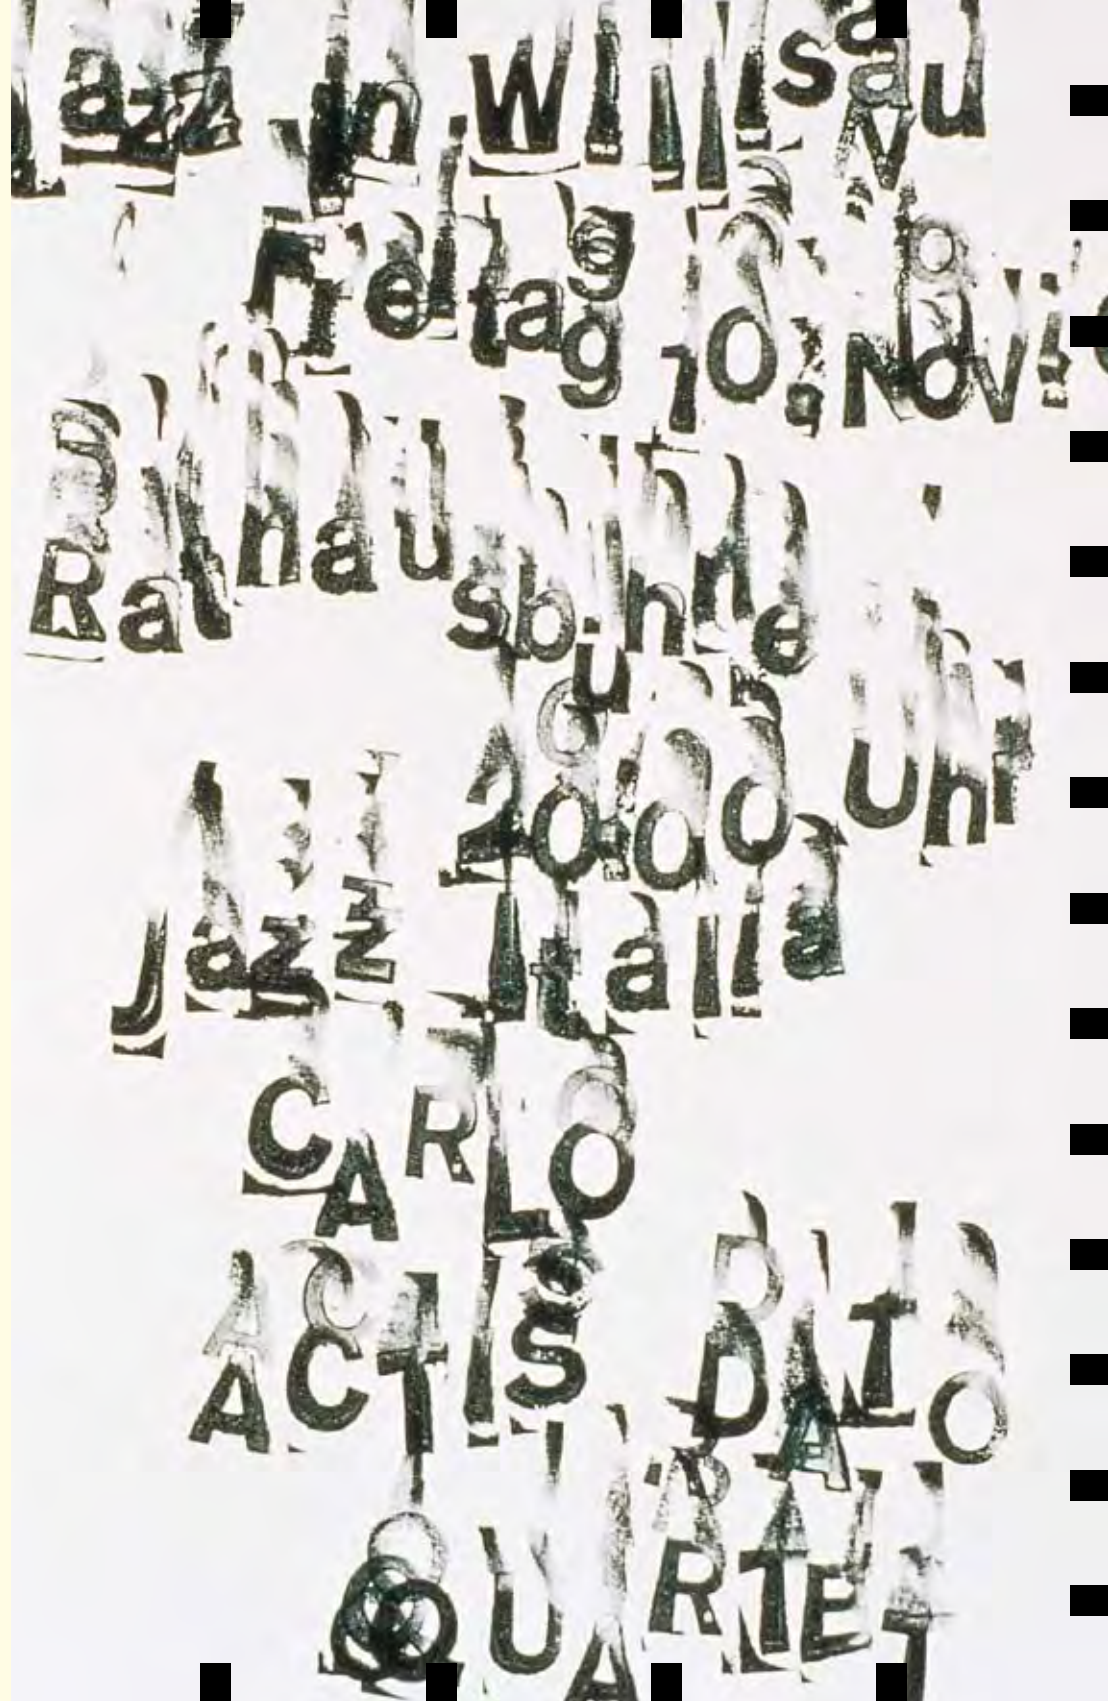 Jazz in Willisau
Freitag 10. Nov.
Rathausbühne
20.00 Uhr
Jazz Italia
CARLO
ACTIS DATO
QUARTET